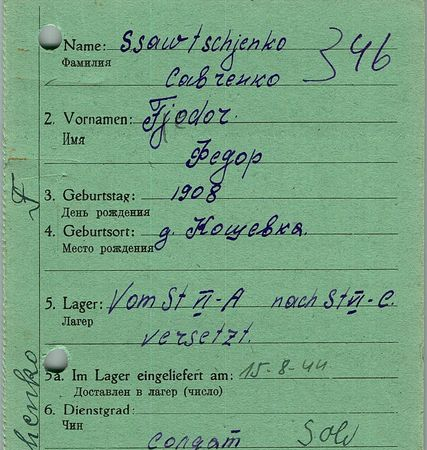 Name: Ssawtschjenko
346
Фамилия
Савченко
2. Vornamen: Fjodor.
Имя
Федор
3. Geburtstag: 1908
День рождения
4. Geburtsort: д. Кощевка.
Место рождения
5. Lager: Vom St VI-A nach St VI-C.
Лагер
versetzt.
5a. Im Lager eingeliefert am: 15-8-44
Доставлен в лагер (число)
6. Dienstgrad:
Чин
солдат Sold
F
henko